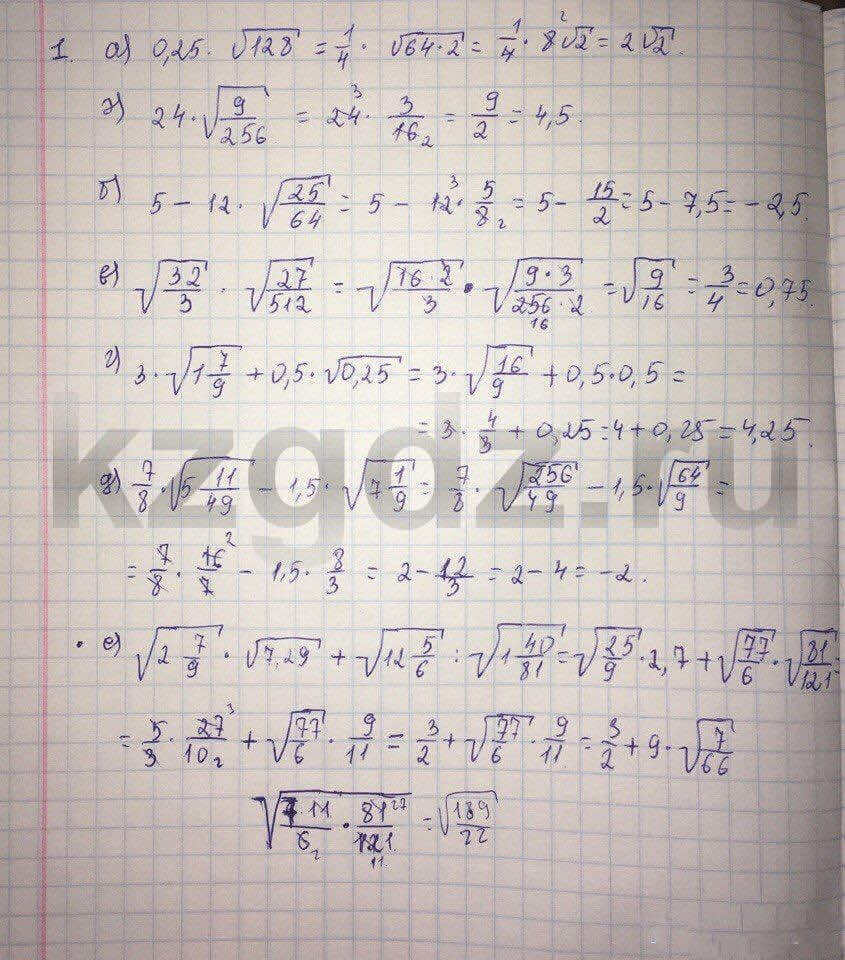 1. а) 0,25 · √128 = 1/4 · √64·2 = 1/4 · 8² √2 = 2√2.
24 · √9/256 = 24³ · 3/16₂ = 9/2 = 4,5.
б) 5 − 12 · √25/64 = 5 − 12³ · 5/8₂ = 5 − 15/2 = 5 − 7,5 = −2,5.
в) √32/3 · √27/512 = √16·2/3 · √9·3/256·2 = √9/16 = 3/4 = 0,75.
16
г) 3 · √1 7/9 + 0,5 · √0,25 = 3 · √16/9 + 0,5 · 0,5 =
= 3 · 4/3 + 0,25 = 4 + 0,25 = 4,25.
д) 7/8 · √5 11/49 − 1,5 · √7 1/9 = 7/8 · √256/49 − 1,5 · √64/9 =
= 7/8 · 16²/7 − 1,5 · 8/3 = 2 − 12/3 = 2 − 4 = −2.
· е) √2 7/9 · √7,29 + √12 5/6 : √1 40/81 = √25/9 · 2,7 + √77/6 · √81/121 =
= 5/3 · 27³/10₂ + √77/6 · 9/11 = 3/2 + √77/6 · 9/11 = 3/2 + 9 · √7/66
√7 11/6₂ · 81²⁷/121 = √189/22
11
kzgdz.ru